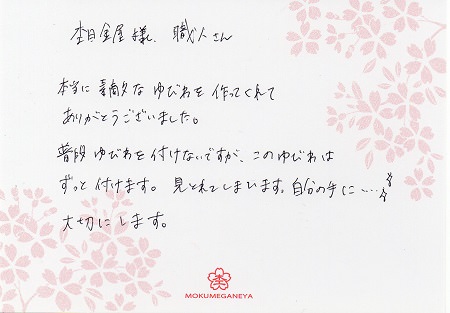 杢目金屋様、職人さん
本当に素敵な ゆびわを 作ってくれて
ありがとうございました。
普段 ゆびわを 付けないですが、このゆびわは
ずっと 付けます。 見とれてしまいます。自分の手に…
大切にします。
MOKUMEGANEYA